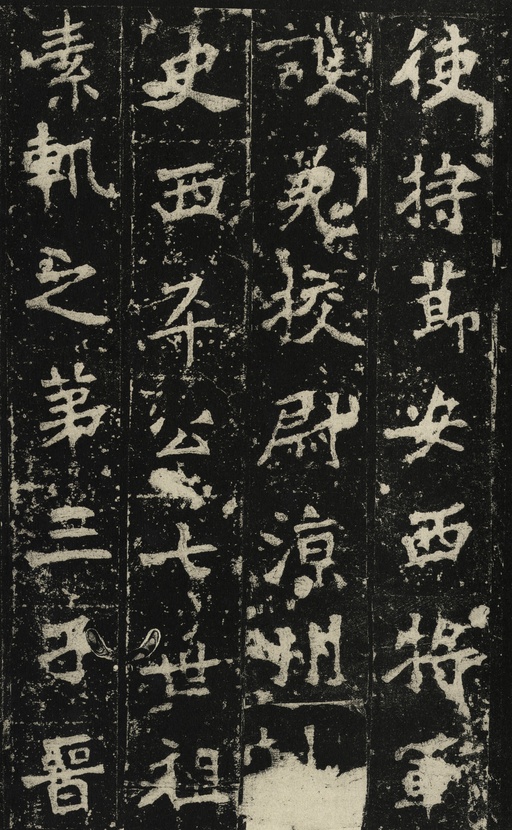 使持節安西將軍
護羌校尉涼州
史西平公七世祖
素軌之第三子晉